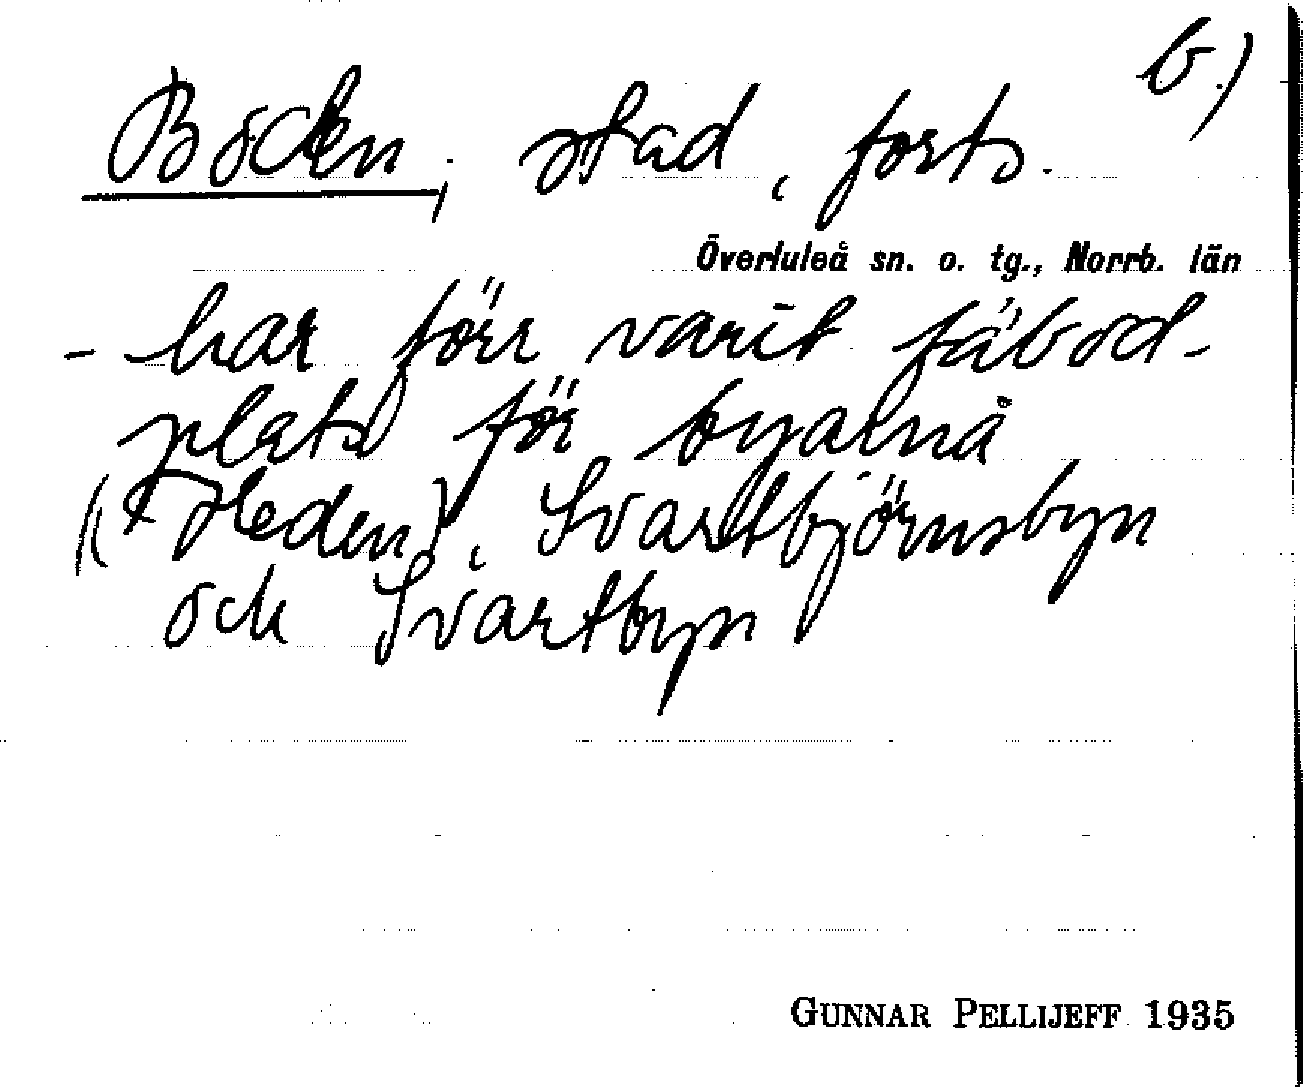 b.)
Boden, stad, forts.
Överluleå sn. o. tg., Norrb. län
- har förr varit fäbod-
plats för byarna
(Heden), Svartbjörnsbyn
och Svartbyn
GUNNAR PELLIJEFF 1935